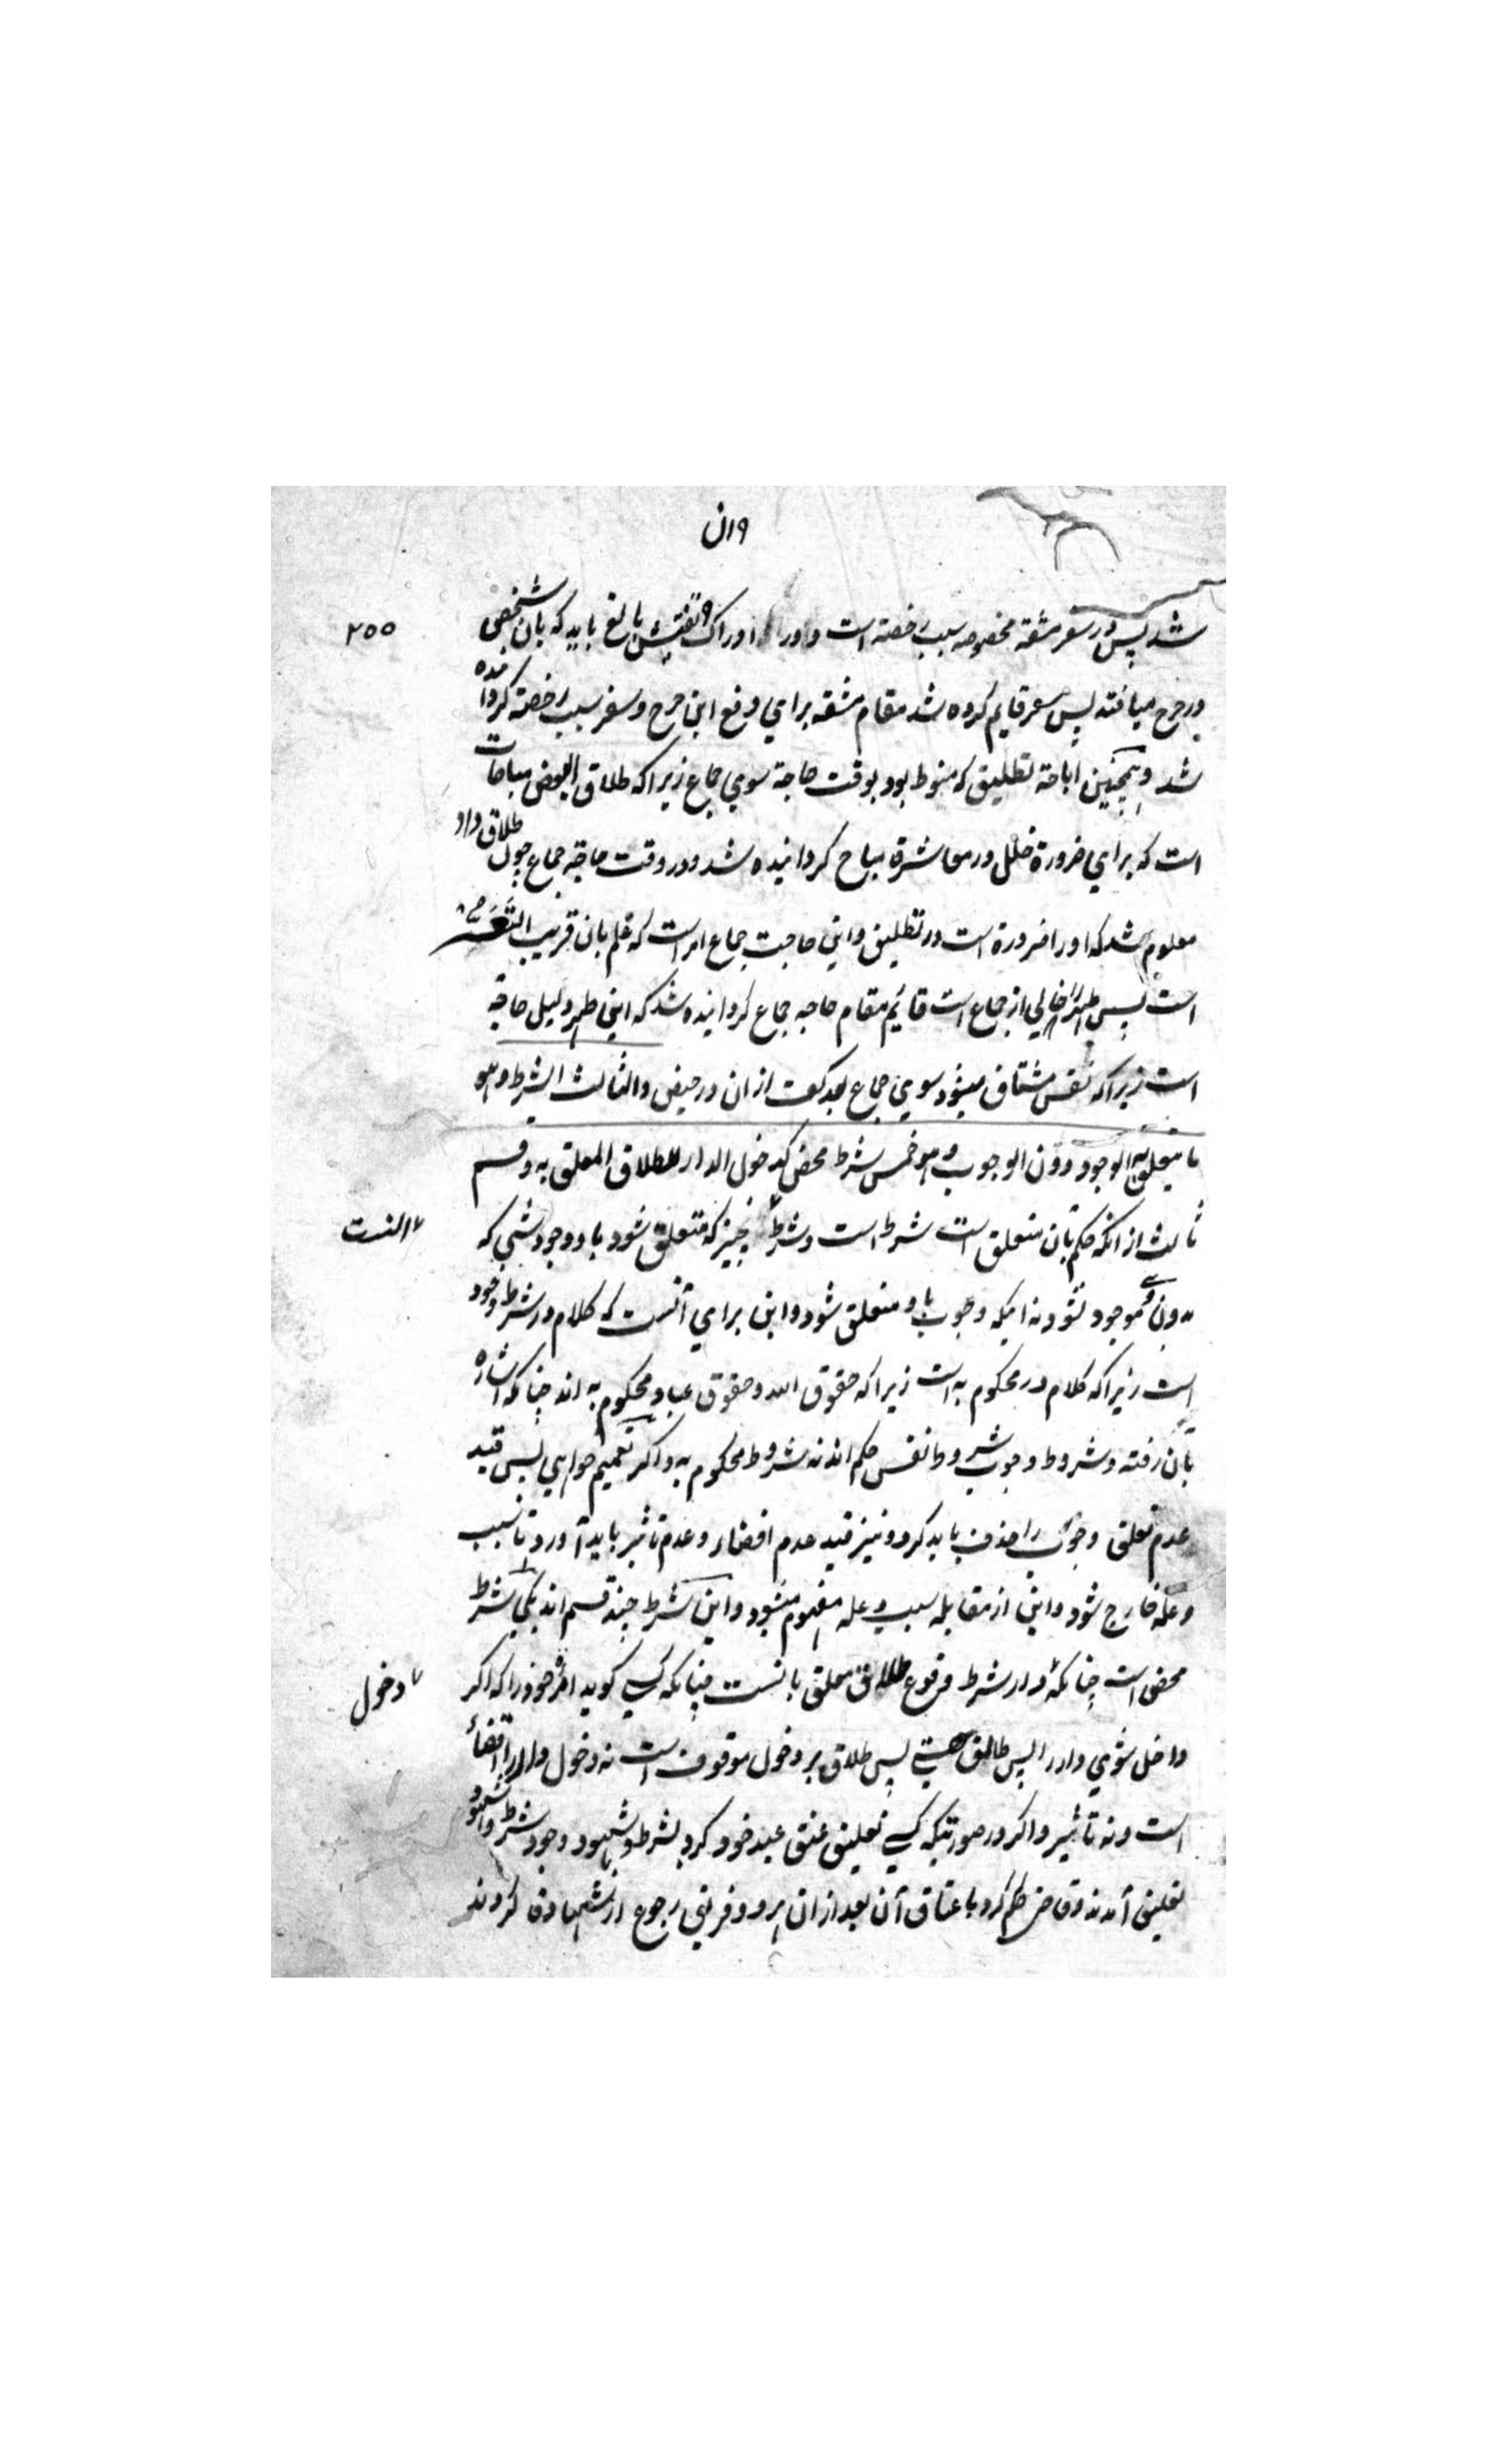 ۹ ان
۲۵۵
شد پس در سفر مشقة مخصوصه سبب رخصته است و اورا ادراک تفتیش بالغ باید که بان شخصی
در حرج میافتد پس سفر قایم کرده شد مقام مشقه برای دفع این حرج و سفر سبب رخصة کردانده
شد و همچنین اباحة تطلیق که منوط بود بوقت حاجة سوی جماع زیرا که طلاق ابغض مباحات
است که برای ضرورة خلل در معاشرة مباح کردانیده شد و در وقت حاجة جماع چون طلاق داد
معلوم شد که اورا ضرورة است در تطلیق و این حاجت جماع امر است که علم بان قریب التعسر
است پس طهر را خالی از جماع است قائم مقام حاجه جماع کردانیده شد که این طهر دلیل حاجة
است زیرا که نفس مشتاق میشود سوی جماع بعد کف ازان در حیض والثالث الشرط وهو
ما یتعلق به الوجود دون الوجوب وهو خمس شرط محض کدخول الدار للطلاق المعلق به و قسم
ثالث از انکه حکم بان متعلق است شرط است و شرط چیز که متعلق شود باو وجود شی که
۷ انست
بدون وی موجود نشود نه اینکه وجوب باو متعلق شود و این برای آنست که کلام در شرط وجود
است زیرا که کلام در محکوم به است زیرا که حقوق الله و حقوق عباد محکوم به اند چنانکه اشاره
بان رفته و شروط وجوب شروط نفس حکم اند نه شروط محکوم به و اکر تعمیم خواهی پس قید
عدم تعلق وجوب را حذف باید کرد و نیز قید عدم افضاء و عدم تاثیر باید آورد تا سبب
و علة خارج شود و این از مقابله سبب و عله مفهوم میشود و این شرط چند قسم اند یکی شرط
محض است چنانکه دار شرط وقوع طلاق معلق بانست چنانکه کسی کوید امرأة خود را که اکر
۷ دخول
داخل شوی دار را پس طالق هستی پس طلاق بر دخول موقوف است نه دخول دار را افضاء
است و نه تاثیر و اکر در صورتیکه کسی تعلیق عتق عبد خود کرد بشرط و شهود وجود شرط و شهود
تعلیق آمدند و قاضی حکم کرد باعتاق آن بعد ازان هر دو فریق رجوع از شهادة کردند